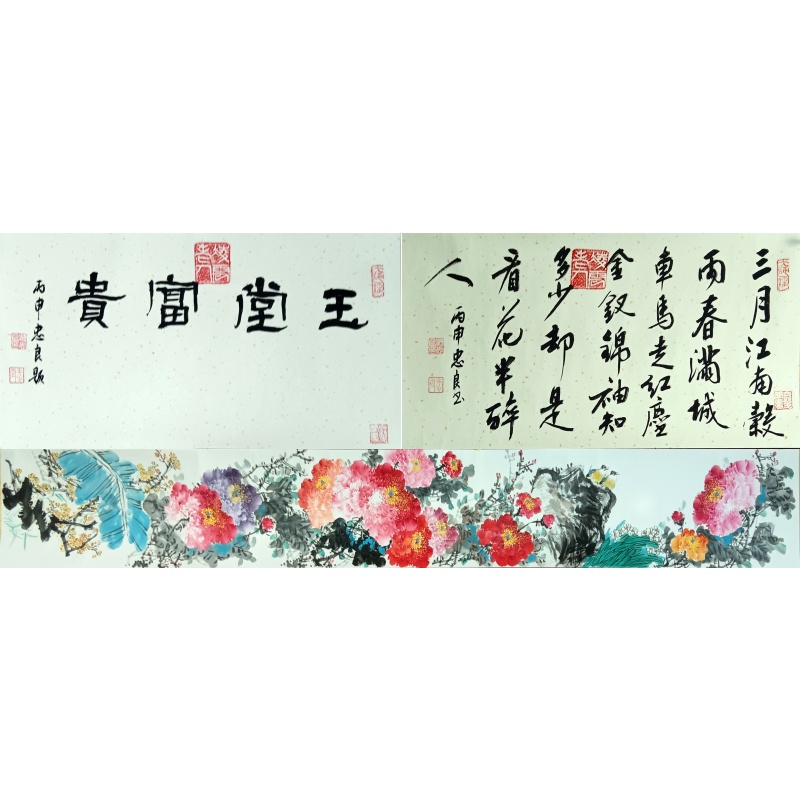 玉堂富貴
丙申忠良題
三月江南穀
雨春滿城
車馬走紅塵
金釵錦袖知
多少却是
看花半醉
人
丙申忠良书